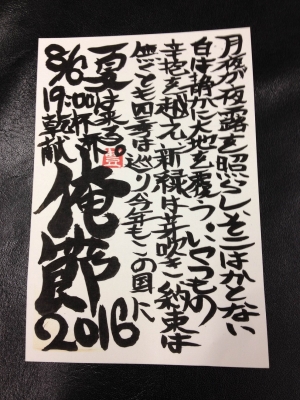 月夜が夜露を照らし、そこはかとない
白は静かに大地を覆う。いくつもの
季節を越え、新緑は芽吹き、約束は
無くとも四季は巡り今年もこの国に、
夏は来る。
8/6
19:00乾杯
献杯
俺節
2016